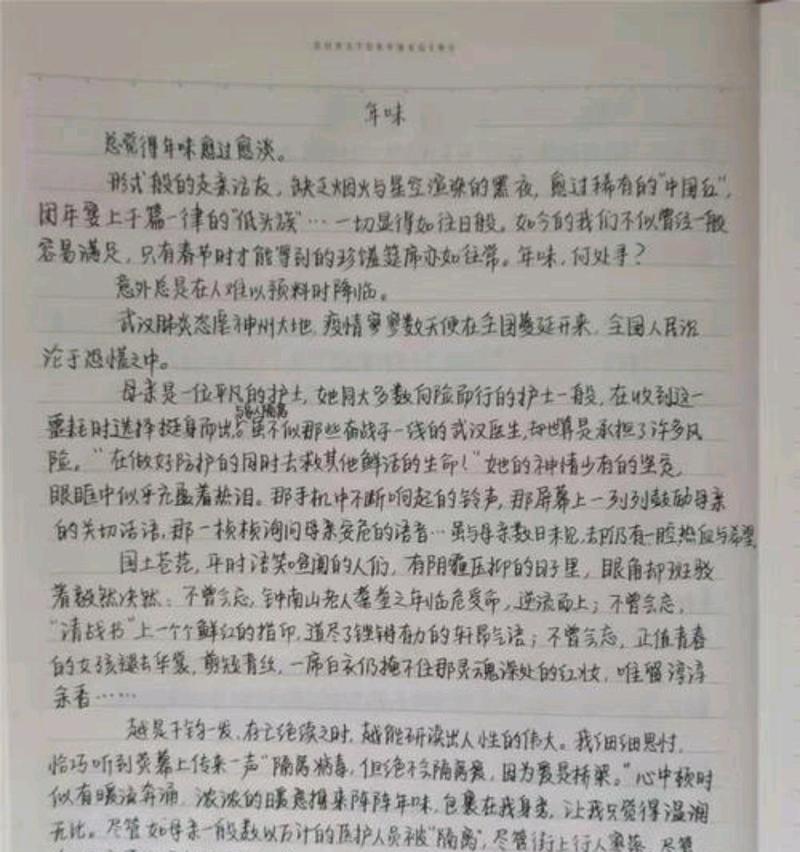 年味
总觉得年味愈过愈淡。
形式般的走亲访友，缺乏烟火与星空渲染的黑夜，愈过稀有的“中国红”，
团年宴上千篇一律的“低头族”…一切显得如往日般。如今的我们不似曾经一般
容易满足，只有春节时才能等到的珍馐筵席亦如往常。年味，何处寻？
意外总是在人难以预料时降临。
武汉肺炎恣虐神州大地，疫情寥寥数天便在全国蔓延开来，全国人民沉
沦于恐慌之中。
母亲是一位平凡的护士，她同大多数向险而行的护士一般，在收到这一
噩耗时选择挺身而出。虽不似那些奋战于一线的武汉医生，却也算是承担了许多风
险。“在做好防护的同时去救其他鲜活的生命！”她的神情少有的坚定，
眼眶中似乎充盈着热泪。那手机中不断响起的铃声，那屏幕上一列列鼓励母亲
的关切话语，那一桢桢询问母亲安危的语音…虽与母亲数日未见，却仍有一腔热血与希望
国土苍茫，平时谈笑喧阗的人们，有阴霾压抑的日子里，眼角却斑驳
着毅然决然：不曾会忘，钟南山老人耄耋之年临危受命，逆流而上；不曾会忘，
“请战书”上一个个鲜红的指印，道尽了铿锵有力的轩昂气语；不曾会忘，正值青春
的女孩褪去华裳，剪短青丝，一席白衣仍掩不住那灵魂深处的红妆，唯留淳淳
余香……
越是千钧一发，存亡绝续之时，越能研读出人性的伟大。我细细思忖，
恰巧听到荧幕上传来一声“隔离病毒，但绝不会隔离爱，因为爱是桥梁。”心中顿时
似有暖流奔涌，浓浓的暖意携来阵阵年味，包裹在我身旁，让我只觉得温润
无比。尽管如母亲一般数以万计的医护人员被“隔离”，尽管街上行人寥落，尽管